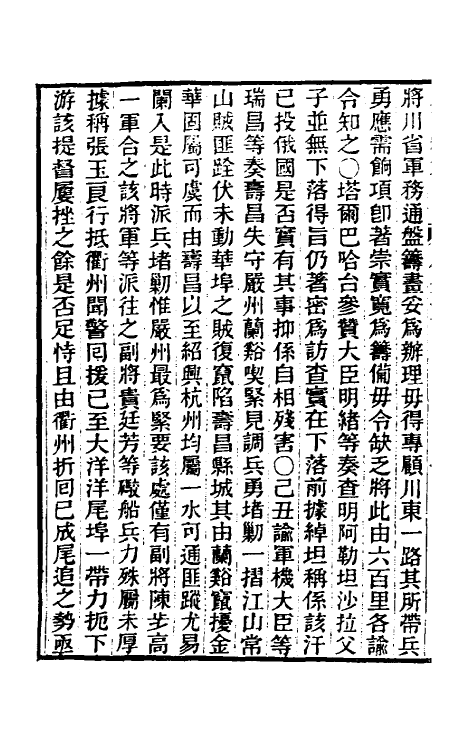 將川省軍務通盤籌畫妥爲辦理毋得專顧川東一路其所帶兵
勇應需餉項卽著崇實寬爲籌備毋令缺乏將此由六百里各諭
令知之〇塔爾巴哈台參贊大臣明緒等奏查明阿勒坦沙拉父
子並無下落得旨仍著密爲訪查實在下落前據綽坦稱係該汗
已投俄國是否實有其事抑係自相殘害〇己丑諭軍機大臣等
瑞昌等奏壽昌失守嚴州蘭谿喫緊見調兵勇堵勦一摺江山常
山賊匪詮伏未動華埠之賊復竄陷壽昌縣城其由蘭谿竄擾金
華固屬可虞而由壽昌以至紹興杭州均屬一水可通匪蹤尤易
闌入是此時派兵堵勦惟嚴州最爲緊要該處僅有副將陳芝高
一軍合之該將軍等派往之副將貴廷芳等礮船兵力殊屬未厚
據稱張玉良行抵衢州聞警回援已至大洋洋尾埠一帶力扼下
游該提督屢挫之餘是否足恃且由衢州折回已成尾追之勢亟